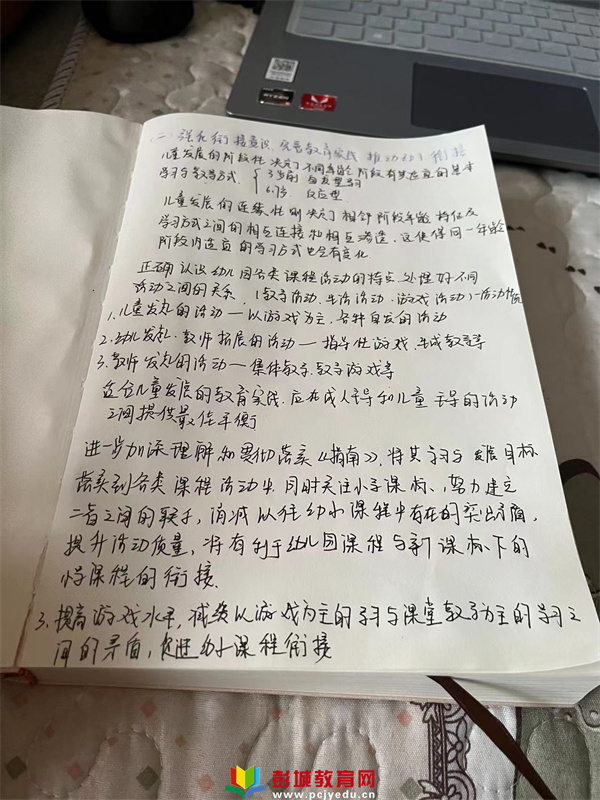 (二) 强化衔接意识,完善教育实践,推动幼小衔接
儿童发展的阶段性决定了不同年龄阶段有其适宜的基本
学习与教学方式. { 3岁前 自发型
6、7岁 反应型
儿童发展的连续性则决定了相邻阶段年龄特征及
学习方式之间的相互连接和相互渗透. 这使得同一年龄
阶段内适宜的学习方式也会有变化
正确认识幼儿园各类课程活动的特点,处理好不同
活动之间的关系. (教学活动、生活活动、游戏活动)
1. 儿童发起的活动—以游戏为主,各种自发的活动
2. 幼儿发起、教师拓展的活动—指导性游戏、生成教学等
3. 教师发起的活动—集体教学、教学游戏等
适合儿童发展的教育实践,应在成人主导和儿童主导的活动
之间提供最佳平衡
进一步加深理解和贯彻落实《指南》,将其学习与发展目标
落实到各类课程活动中.同时关注小学课标、努力建立
二者之间的联系,消减以往幼小课程中存在的突出矛盾,
提升活动质量,将有利于幼儿园课程与新课标下的
小学课程的衔接.
3. 提高游戏水平,减缓以游戏为主的学习与课堂教学为主的学习之
间的矛盾,促进幼小课程衔接
RYZEN
RADEON
彭城教育网
www.pcjyedu.cn